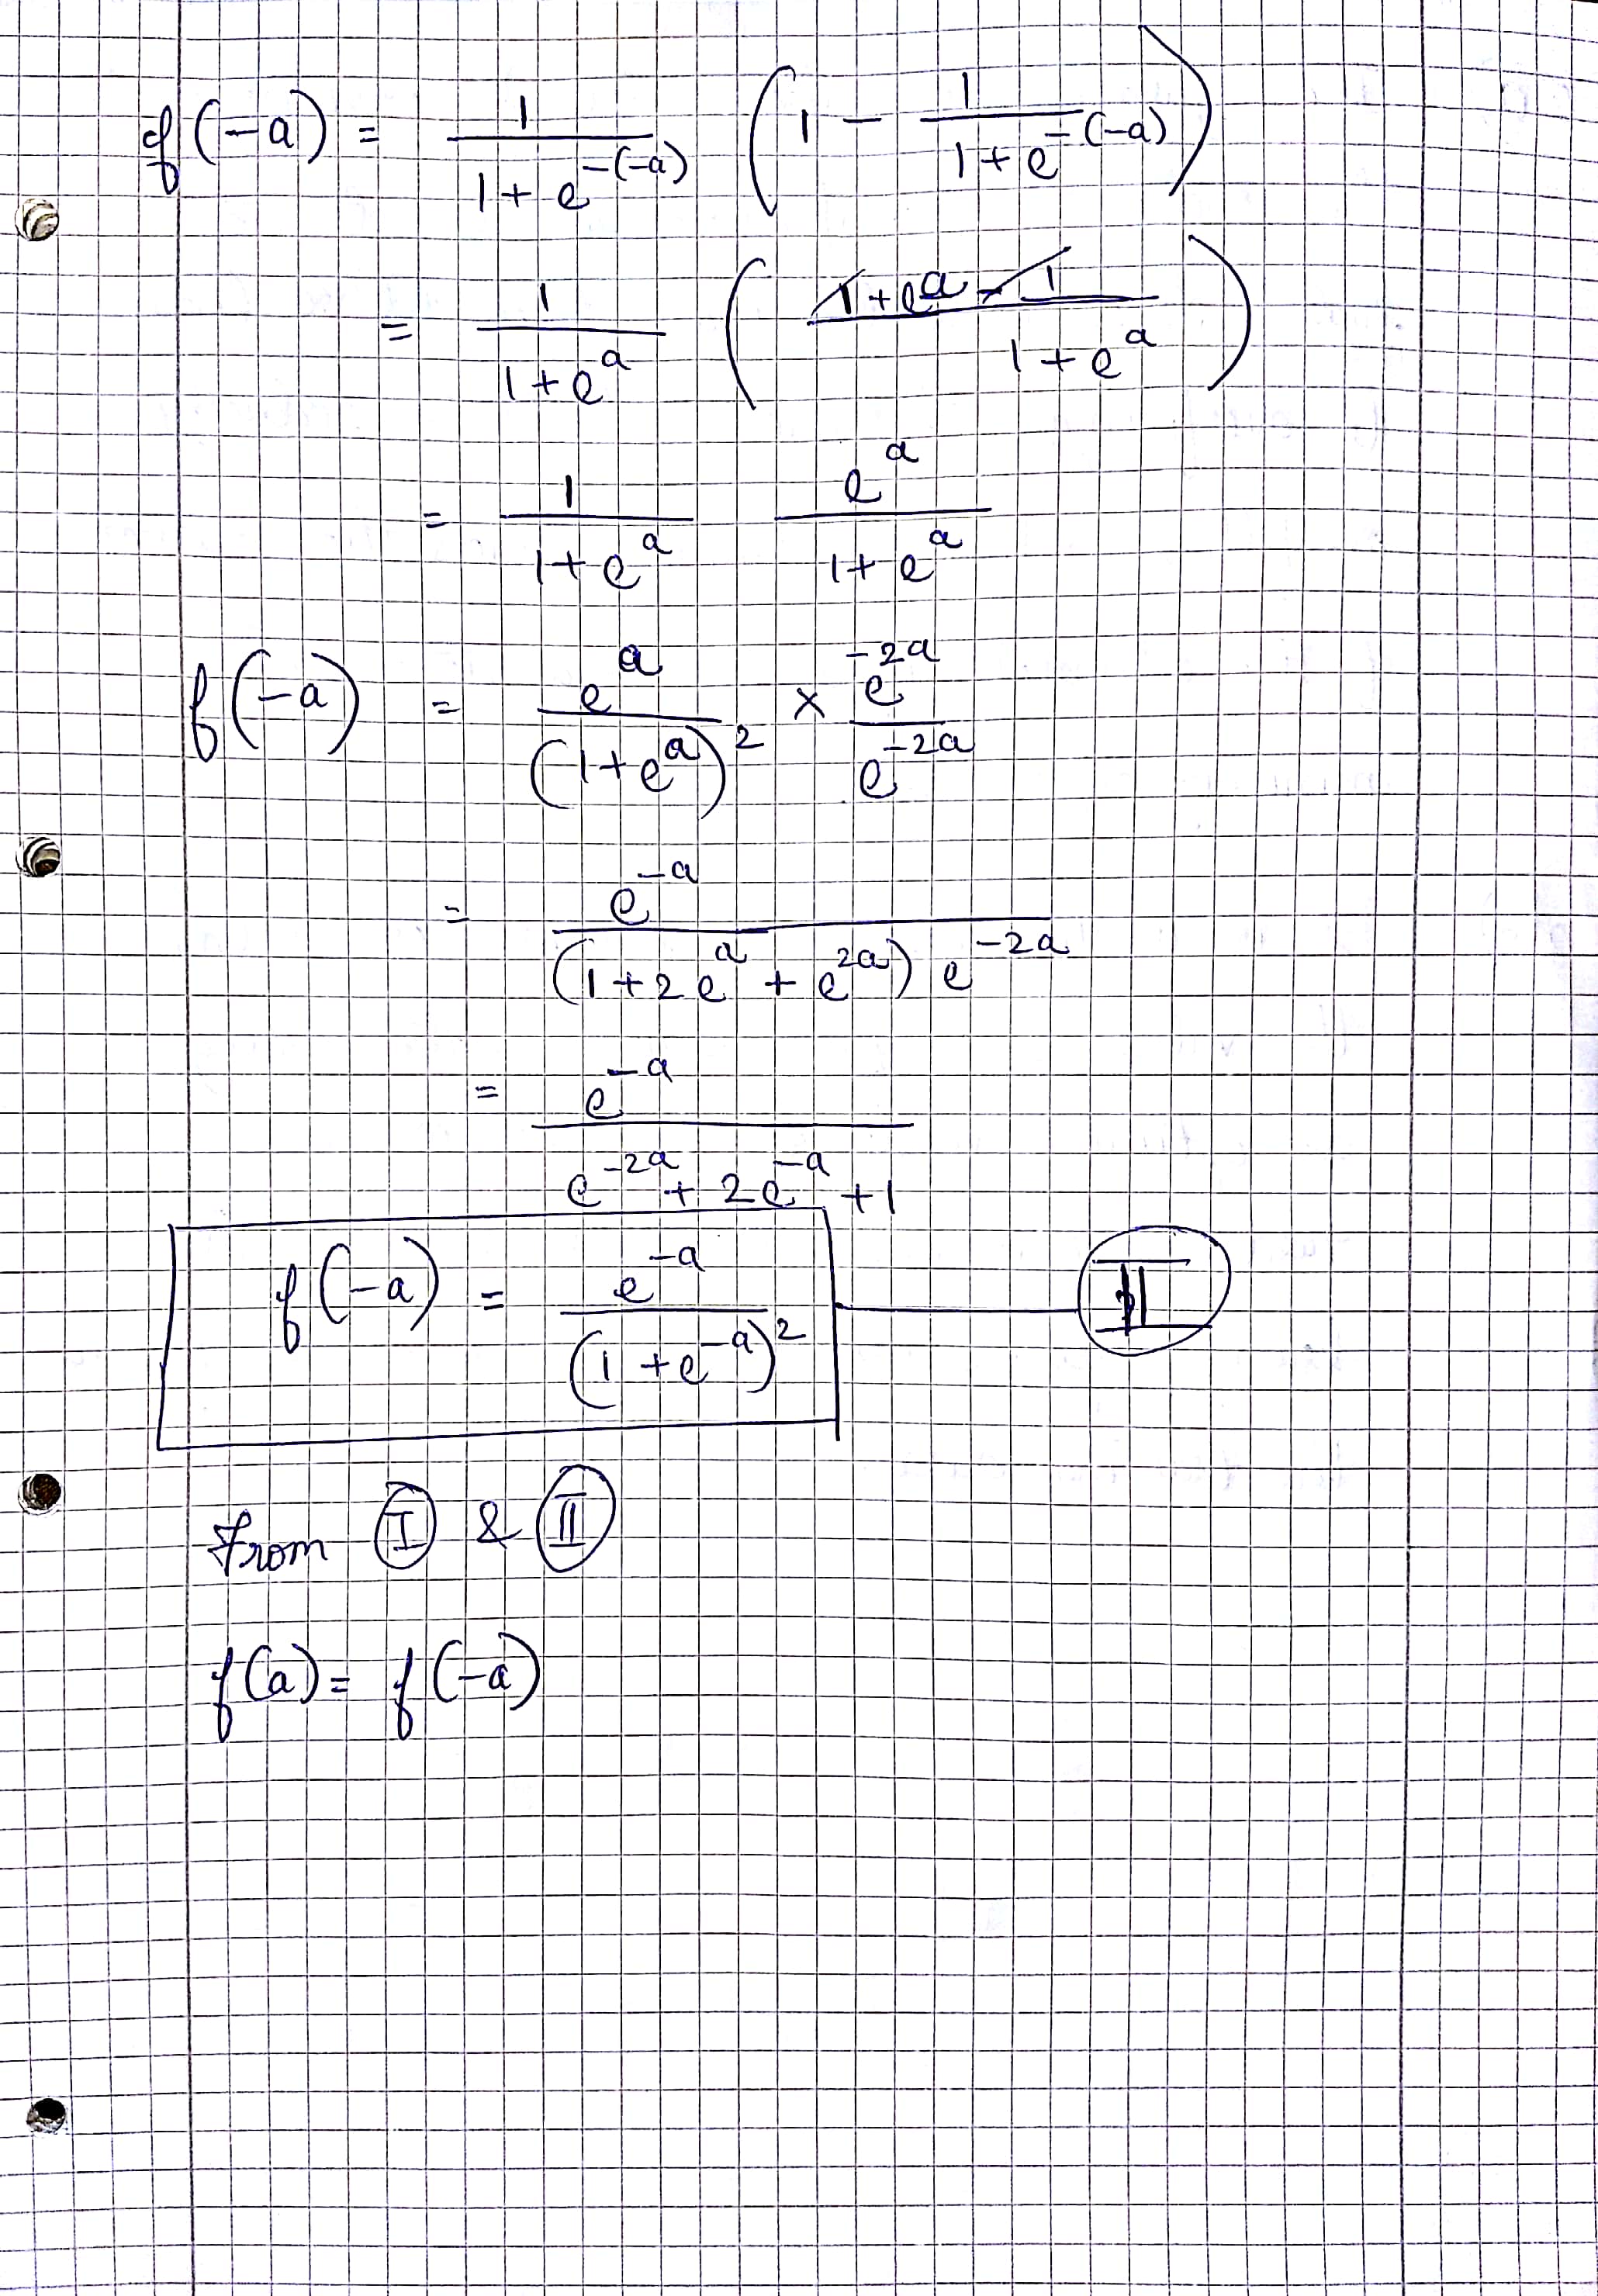 f(-a) = \frac{1}{1+e^{-(-a)}} \left( 1 - \frac{1}{1+e^{-(-a)}} \right)
= \frac{1}{1+e^{a}} \left( \frac{\cancel{1}+e^{a}-\cancel{1}}{1+e^{a}} \right)
= \frac{1}{1+e^{a}} \frac{e^{a}}{1+e^{a}}
f(-a) = \frac{e^{a}}{(1+e^{a})^{2}} \times \frac{e^{-2a}}{e^{-2a}}
= \frac{e^{-a}}{(1+2e^{a}+e^{2a}) e^{-2a}}
= \frac{e^{-a}}{e^{-2a}+2e^{-a}+1}
f(-a) = \frac{e^{-a}}{(1+e^{-a})^{2}} — II
From I & II
f(a) = f(-a)